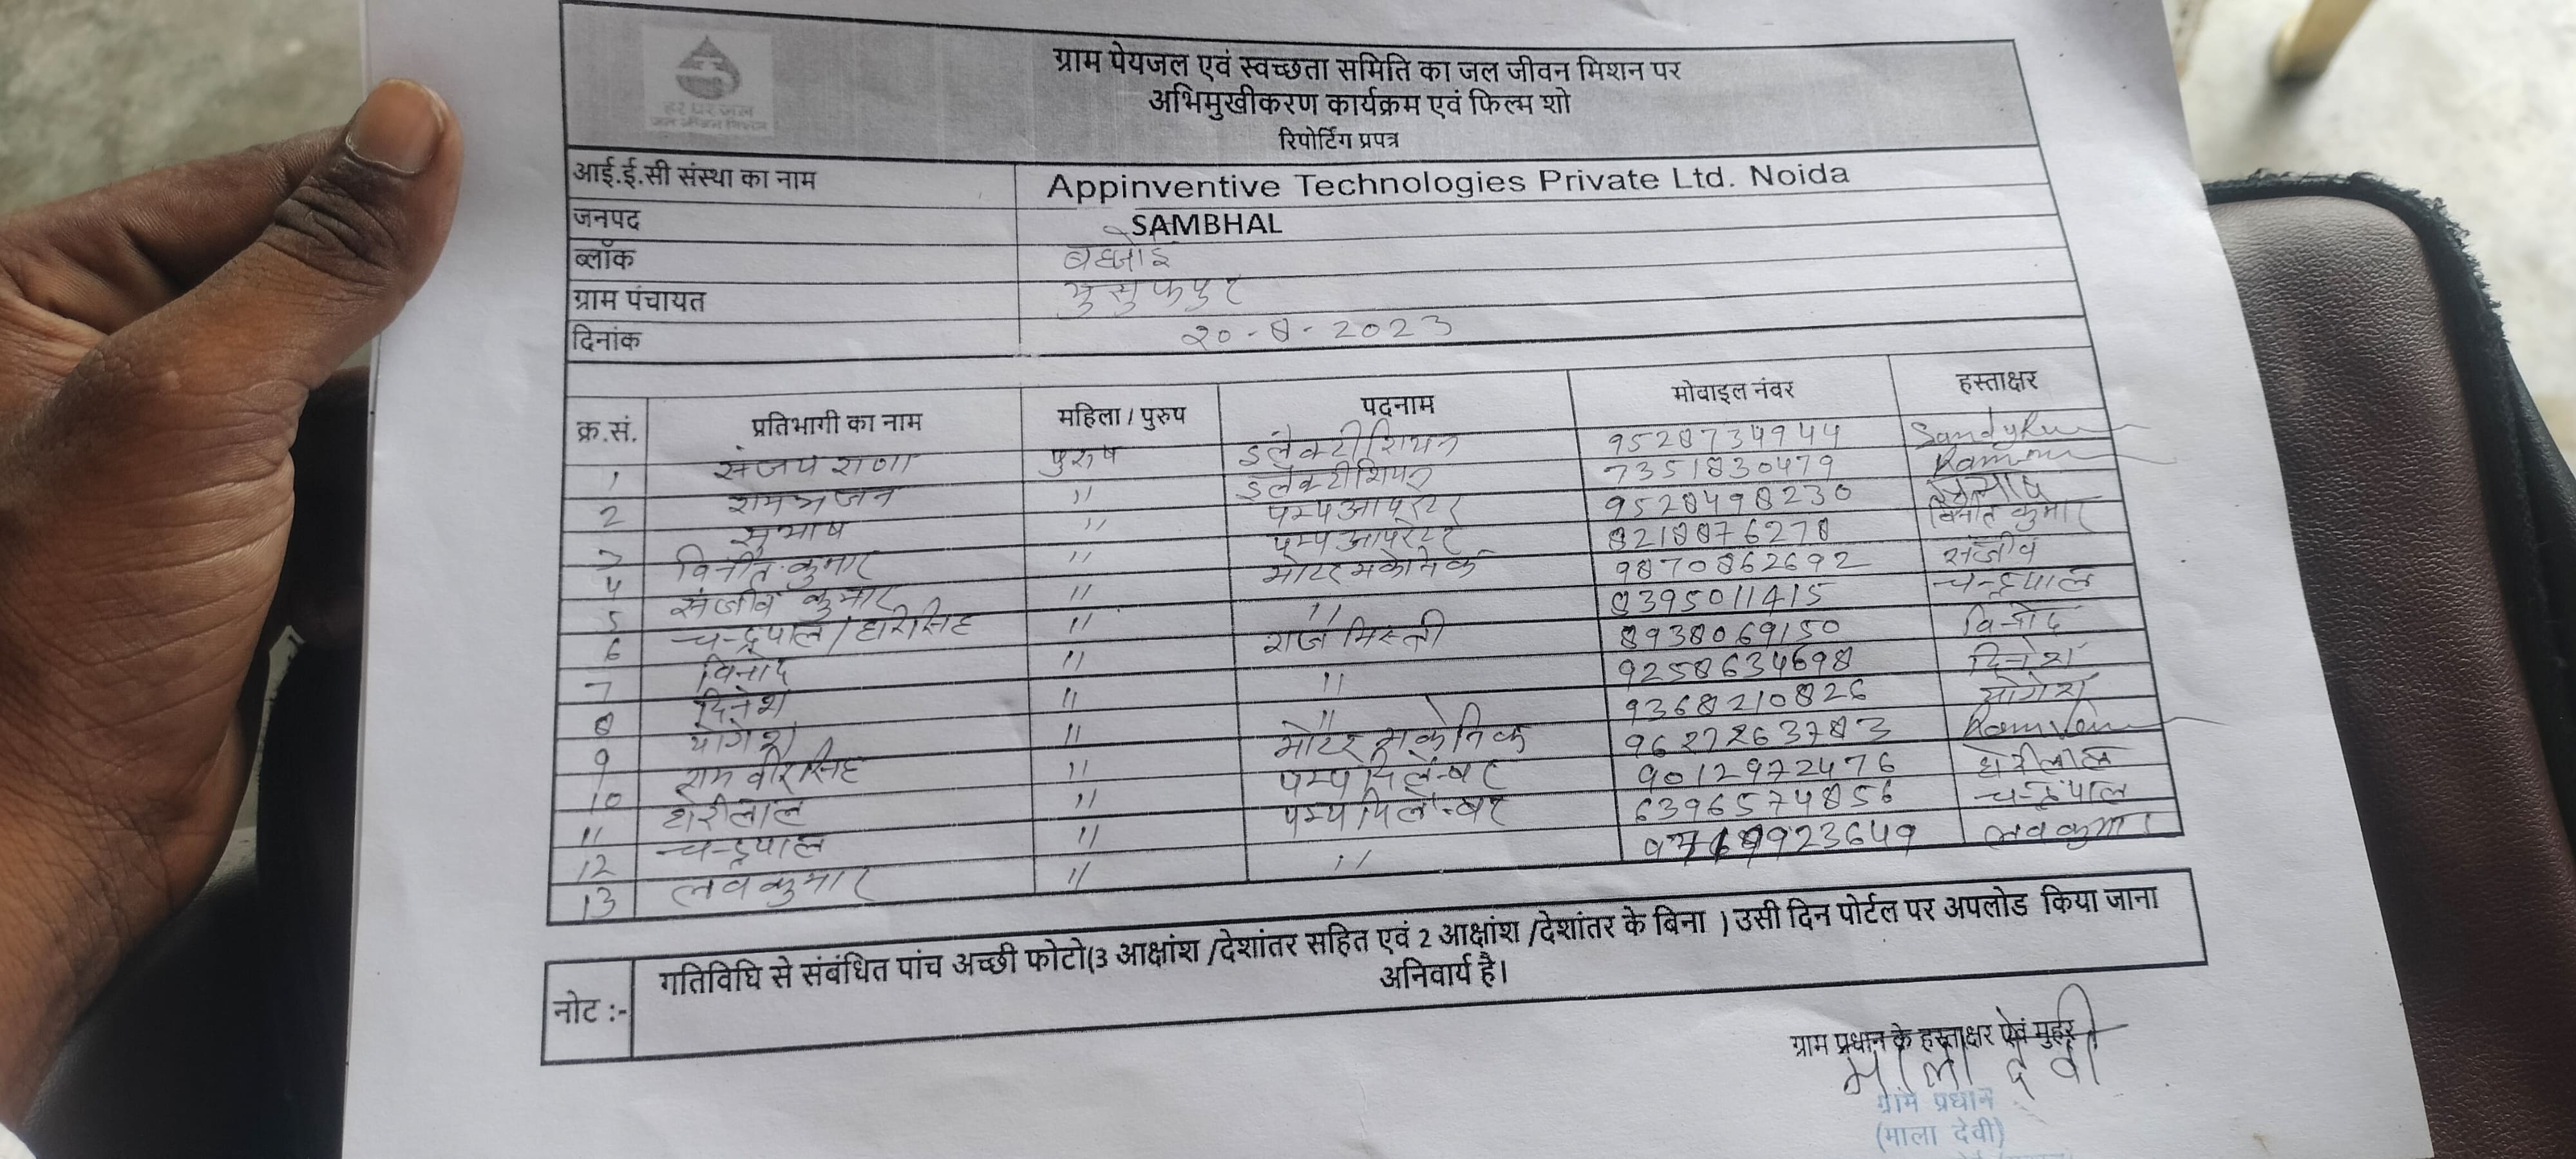 हर घर जल
जल जीवन मिशन
ग्राम पेयजल एवं स्वच्छता समिति का जल जीवन मिशन पर
अभिमुखीकरण कार्यक्रम एवं फिल्म शो
रिपोर्टिंग प्रपत्र
आई.ई.सी संस्था का नाम Appinventive Technologies Private Ltd. Noida
जनपद SAMBHAL
ब्लॉक बहजोई
ग्राम पंचायत युसुफपुर
दिनांक २०-8-2023
क्र.सं. प्रतिभागी का नाम महिला / पुरुष पदनाम मोबाइल नंबर हस्ताक्षर
1 संजय राणा पुरुष इलैक्टीशियन 9528734944
2 रामभजन " इलैक्टीशियन 7351830479
3 सुभाष " पम्प आपरेटर 9528498230 सुभाष
4 विनीत कुमार " पम्प आपरेटर 8218876278 विनीत कुमार
5 संजीव कुमार " मोटर मकेनिक 9870862692 संजीव
6 चन्द्रपाल / हरीसिंह " " 8395011415 चन्द्रपाल
7 विनोद " राज मिस्त्री 8938069150 विनोद
8 दिनेश " " 9258634698 दिनेश
9 योगेश " " 9368210826 योगेश
10 राम वीर सिंह " मोटर मकेनिक 9627263783
11 शेरीलाल " पम्प पिलम्बर 9012972476 शेरीलाल
12 चन्द्रपाल " पम्प पिलम्बर 6396574856 चन्द्रपाल
13 लवकुमार " " लवकुमार
नोट :- गतिविधि से संबंधित पांच अच्छी फोटो(3 आक्षांश /देशांतर सहित एवं 2 आक्षांश /देशांतर के बिना ) उसी दिन पोर्टल पर अपलोड किया जाना
अनिवार्य है।
ग्राम प्रधान के हस्ताक्षर एवं मुहर
माला देवी
ग्राम प्रधान
(माला देवी)